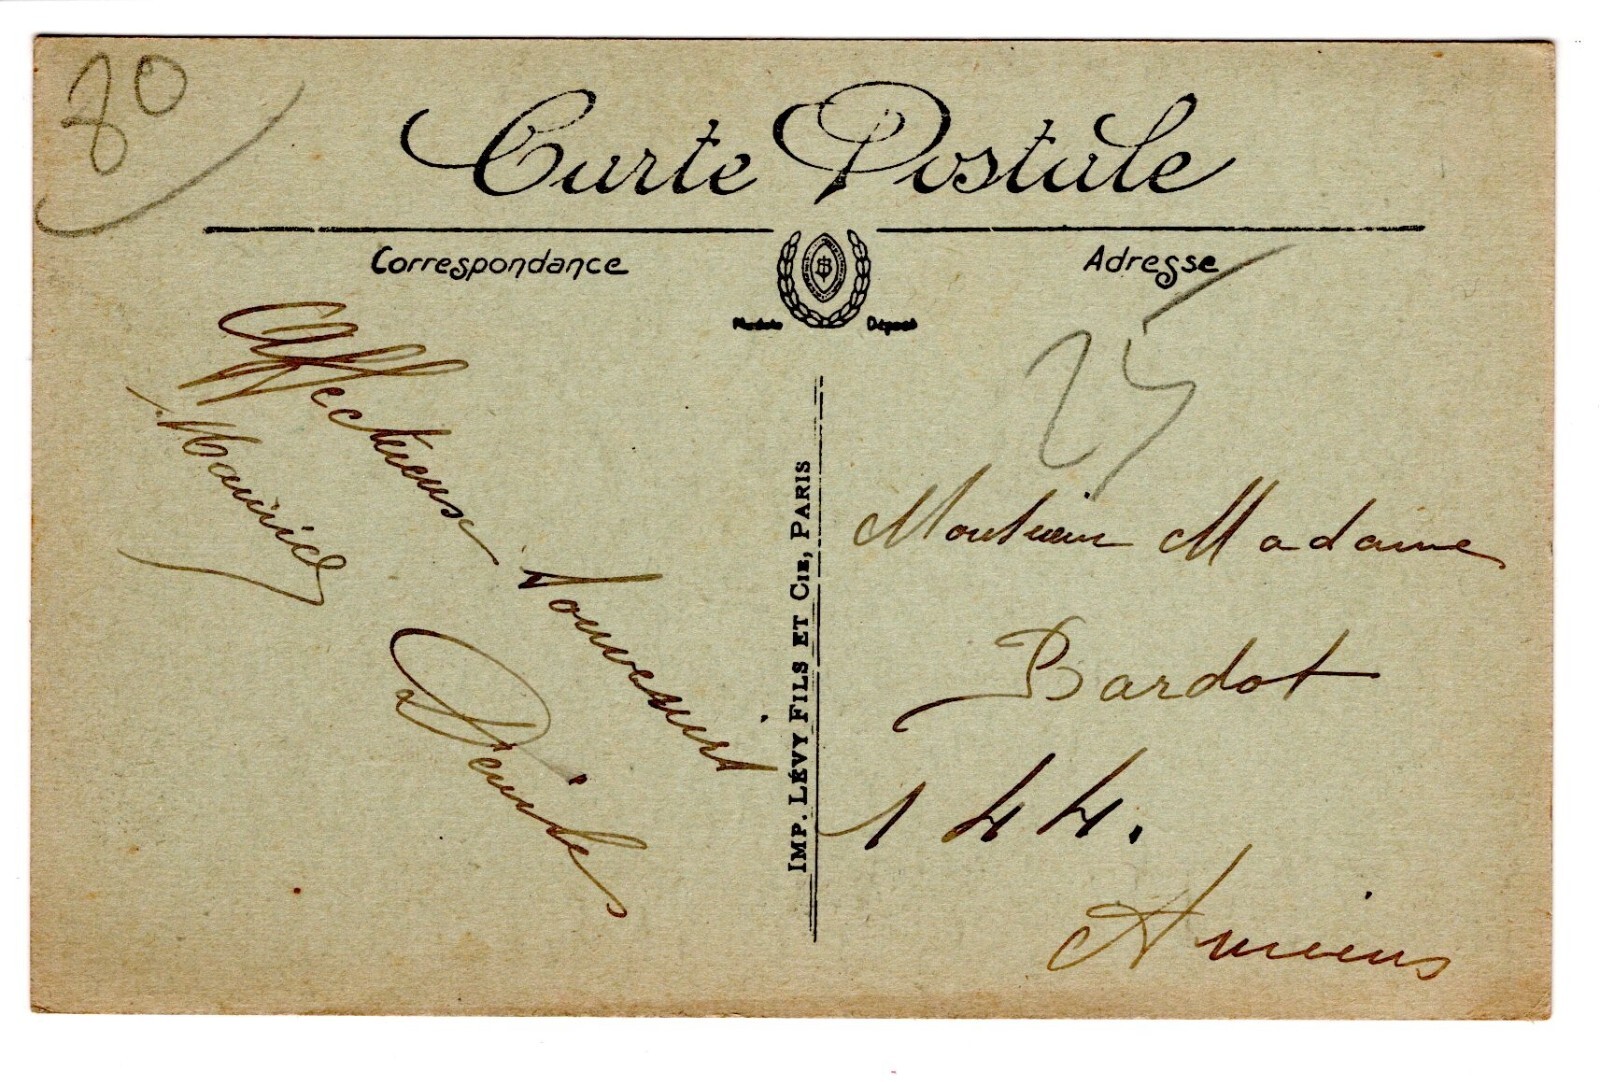 80
Carte Postale
Correspondance
Adresse
Modèle Déposé
25
Affectueux Souvenirs
Maurice
Denise
IMP. LÉVY FILS ET CIE, PARIS
Monsieur Madame
Bardot
144.
Amiens